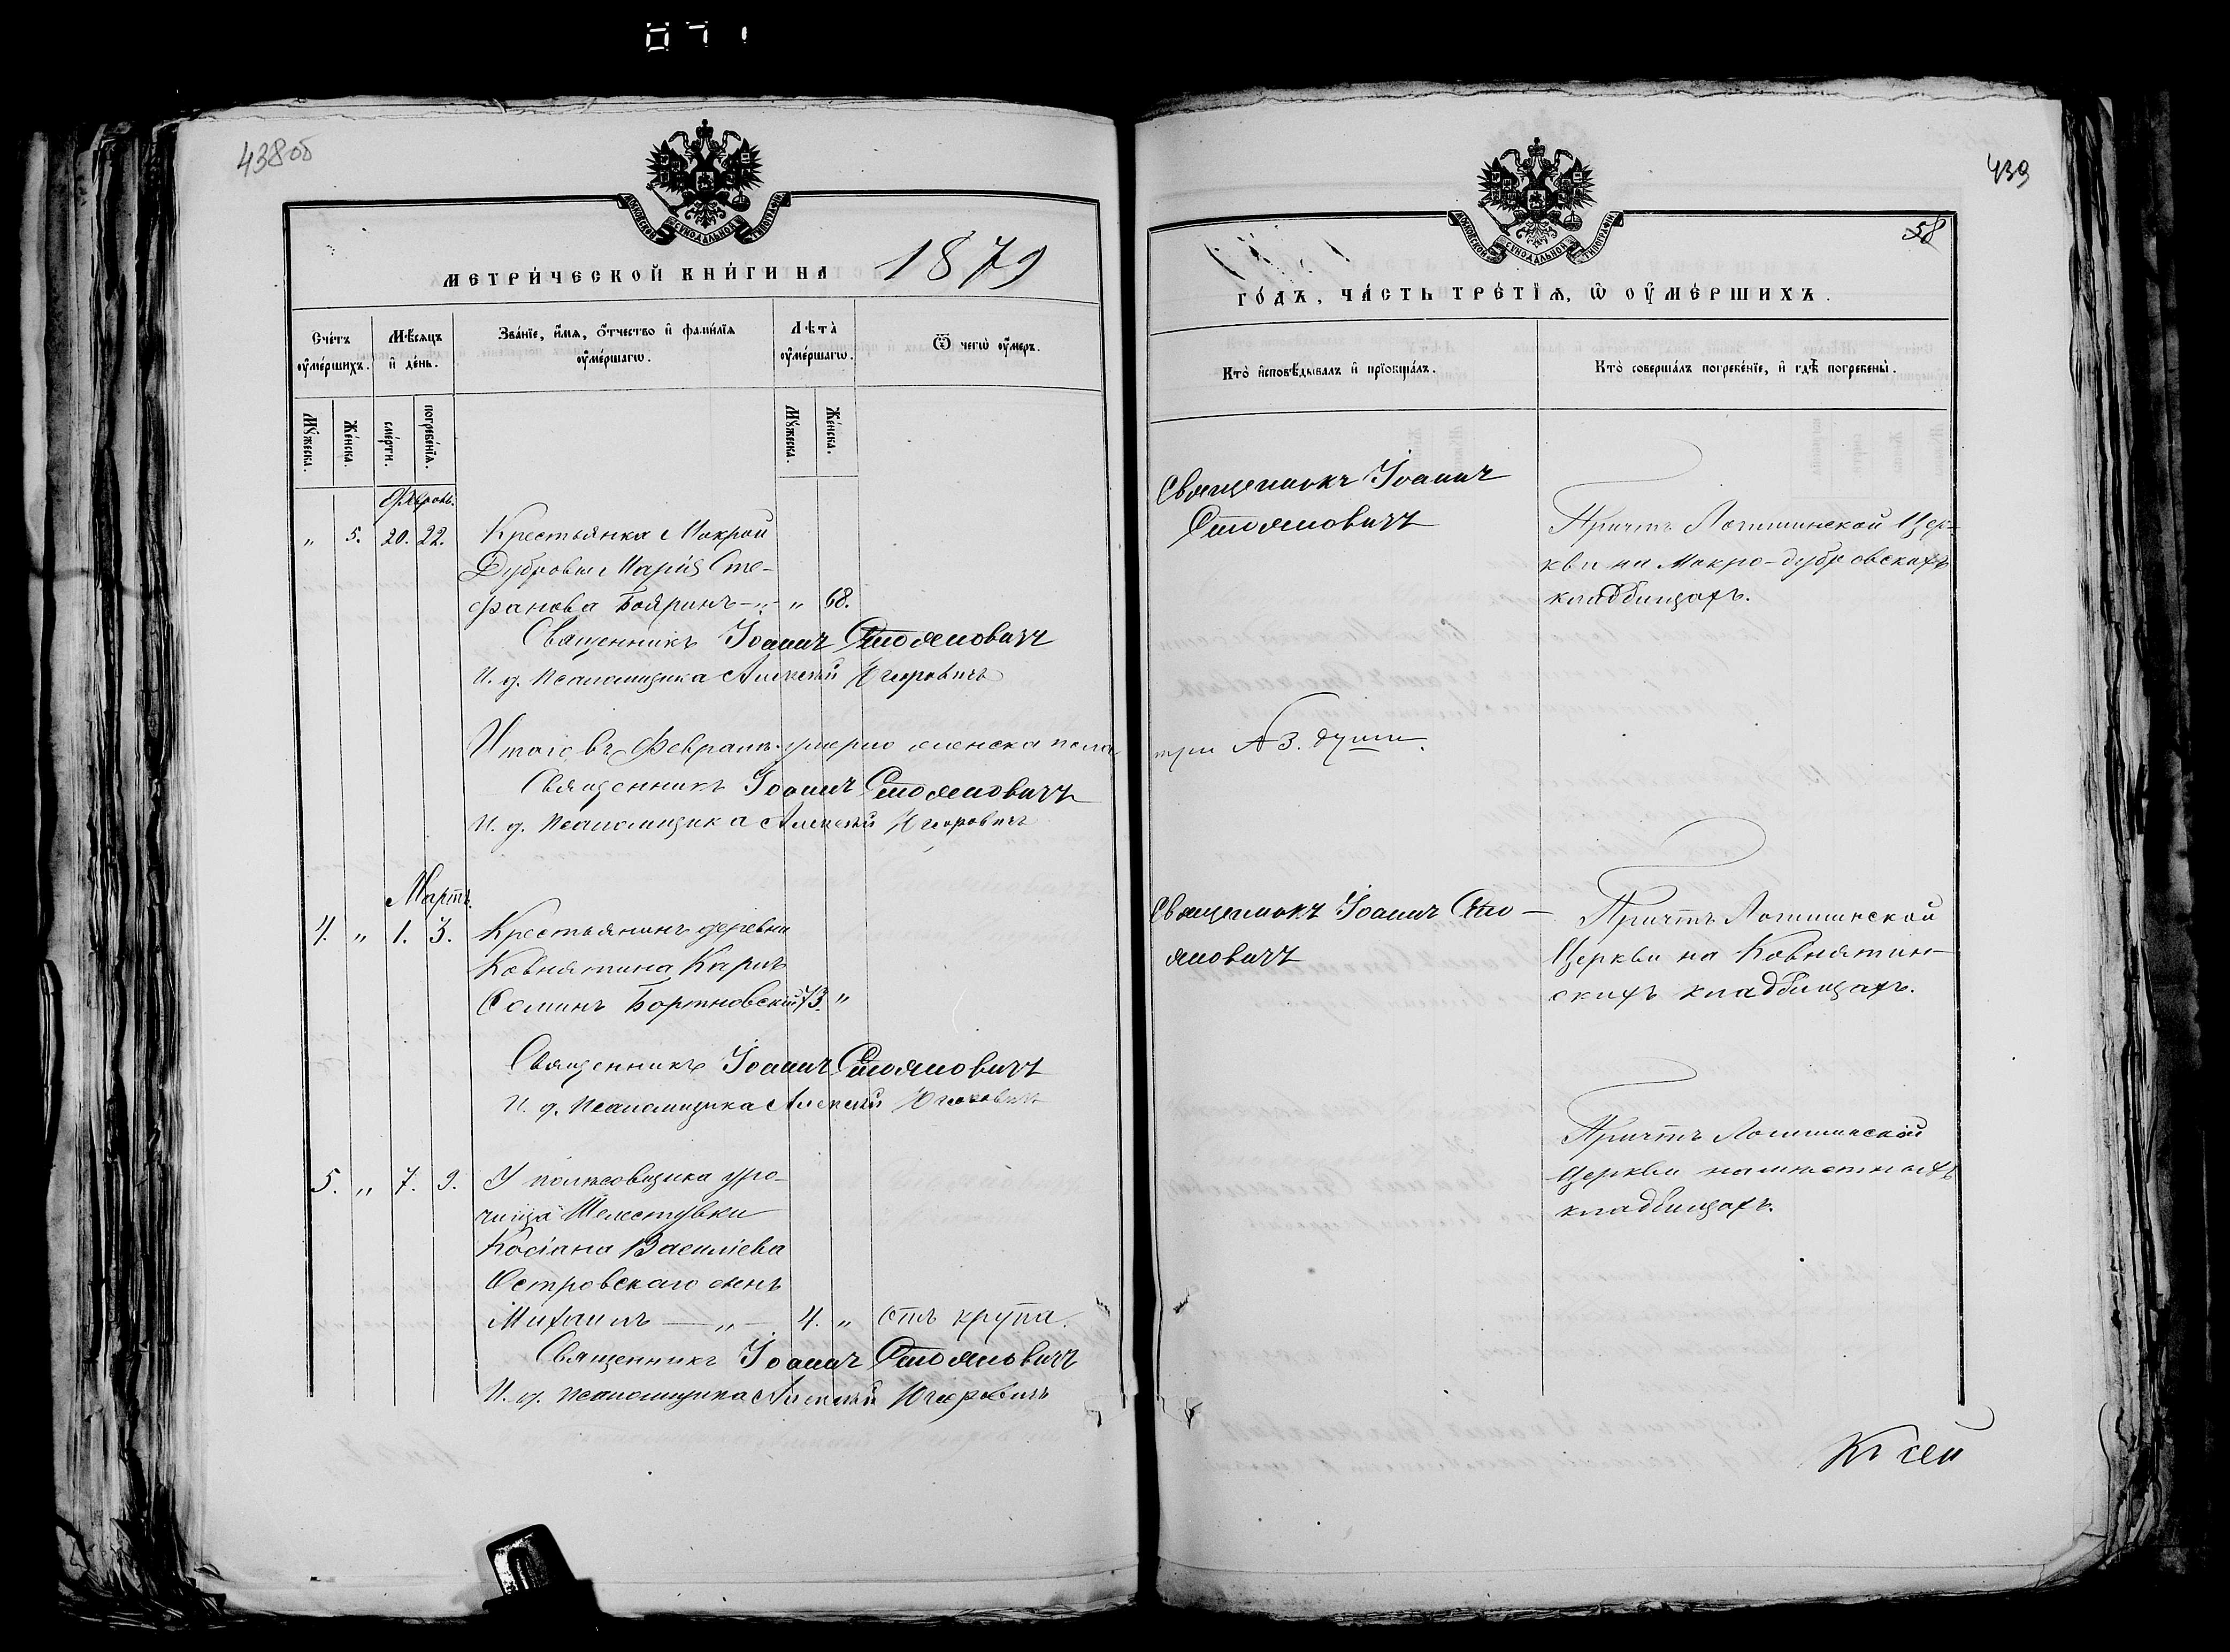 438об
МОСКОВСКОЙ СУНОДАЛЬНОЙ ТИПОГРАФІИ
МЕТРИ́ЧЕСКОЙ КНИ́ГИ НА 1879
Сче́тъ оу҆ме́ршихъ.
Мѣ́сяцъ и҆ де́нь.
Зва́нїе, и҆́мѧ, ѻ҆́тчество и҆ фамилїѧ оу҆ме́ршагѡ.
Лѣта̀ оу҆ме́ршагѡ.
Ѿ чегѡ̀ оу҆́меръ.
Мꙋ́жеска.
Же́нска.
сме́рти.
погребе́нїѧ.
Мꙋ́жеска.
Же́нска.
„ 5. 20. 22. Крестьянка Мокрой
Дубровы Марія Сте-
фанова Бояринъ — „ — „ 68.
Священникъ Іоаннъ Стояновичъ
И. д. Псаломщика Алексѣй
Итого въ Февралѣ умерло женска пола
Священникъ Іоаннъ Стояновичъ
И. д. Псаломщика Алексѣй
Мартъ.
4. „ 1. 3. Крестьянинъ деревни
Ковнятина Карпъ
Семинъ Бортновскій 73. „
Священникъ Іоаннъ Стояновичъ
И. д. Псаломщика Алексѣй
5. „ 7. 9. У полѣсовщика уро-
чища Шелестувки
Косіана Василіева
Островскаго сынъ
Михаилъ — „ — 4. „ отъ крупа.
Священникъ Іоаннъ Стояновичъ
И. д. Псаломщика Алексѣй
439
58
МОСКОВСКОЙ СУНОДАЛЬНОЙ ТИПОГРАФІИ
ГО́ДЪ, ЧА́СТЬ ТРЕ́ТЇѦ, Ѡ҆ ОУ҆МЕ́РШИХЪ.
Кто̀ и҆сповѣ́дывалъ и҆ прїѡбща́лъ.
Кто̀ соверша́лъ погребе́нїе, и҆ гдѣ̀ погребены̀.
Священникъ Іоаннъ
Стояновичъ
Причтъ Логишинской Цер-
кви на Мокро-дубровскихъ
кладбищахъ.
три 3. души.
Священникъ Іоаннъ Сто-
яновичъ
Причтъ Логишинской
Церкви на Ковнятин-
скихъ кладбищахъ.
Причтъ Логишинской
Церкви на мѣстныхъ
кладбищахъ.
Къ сей